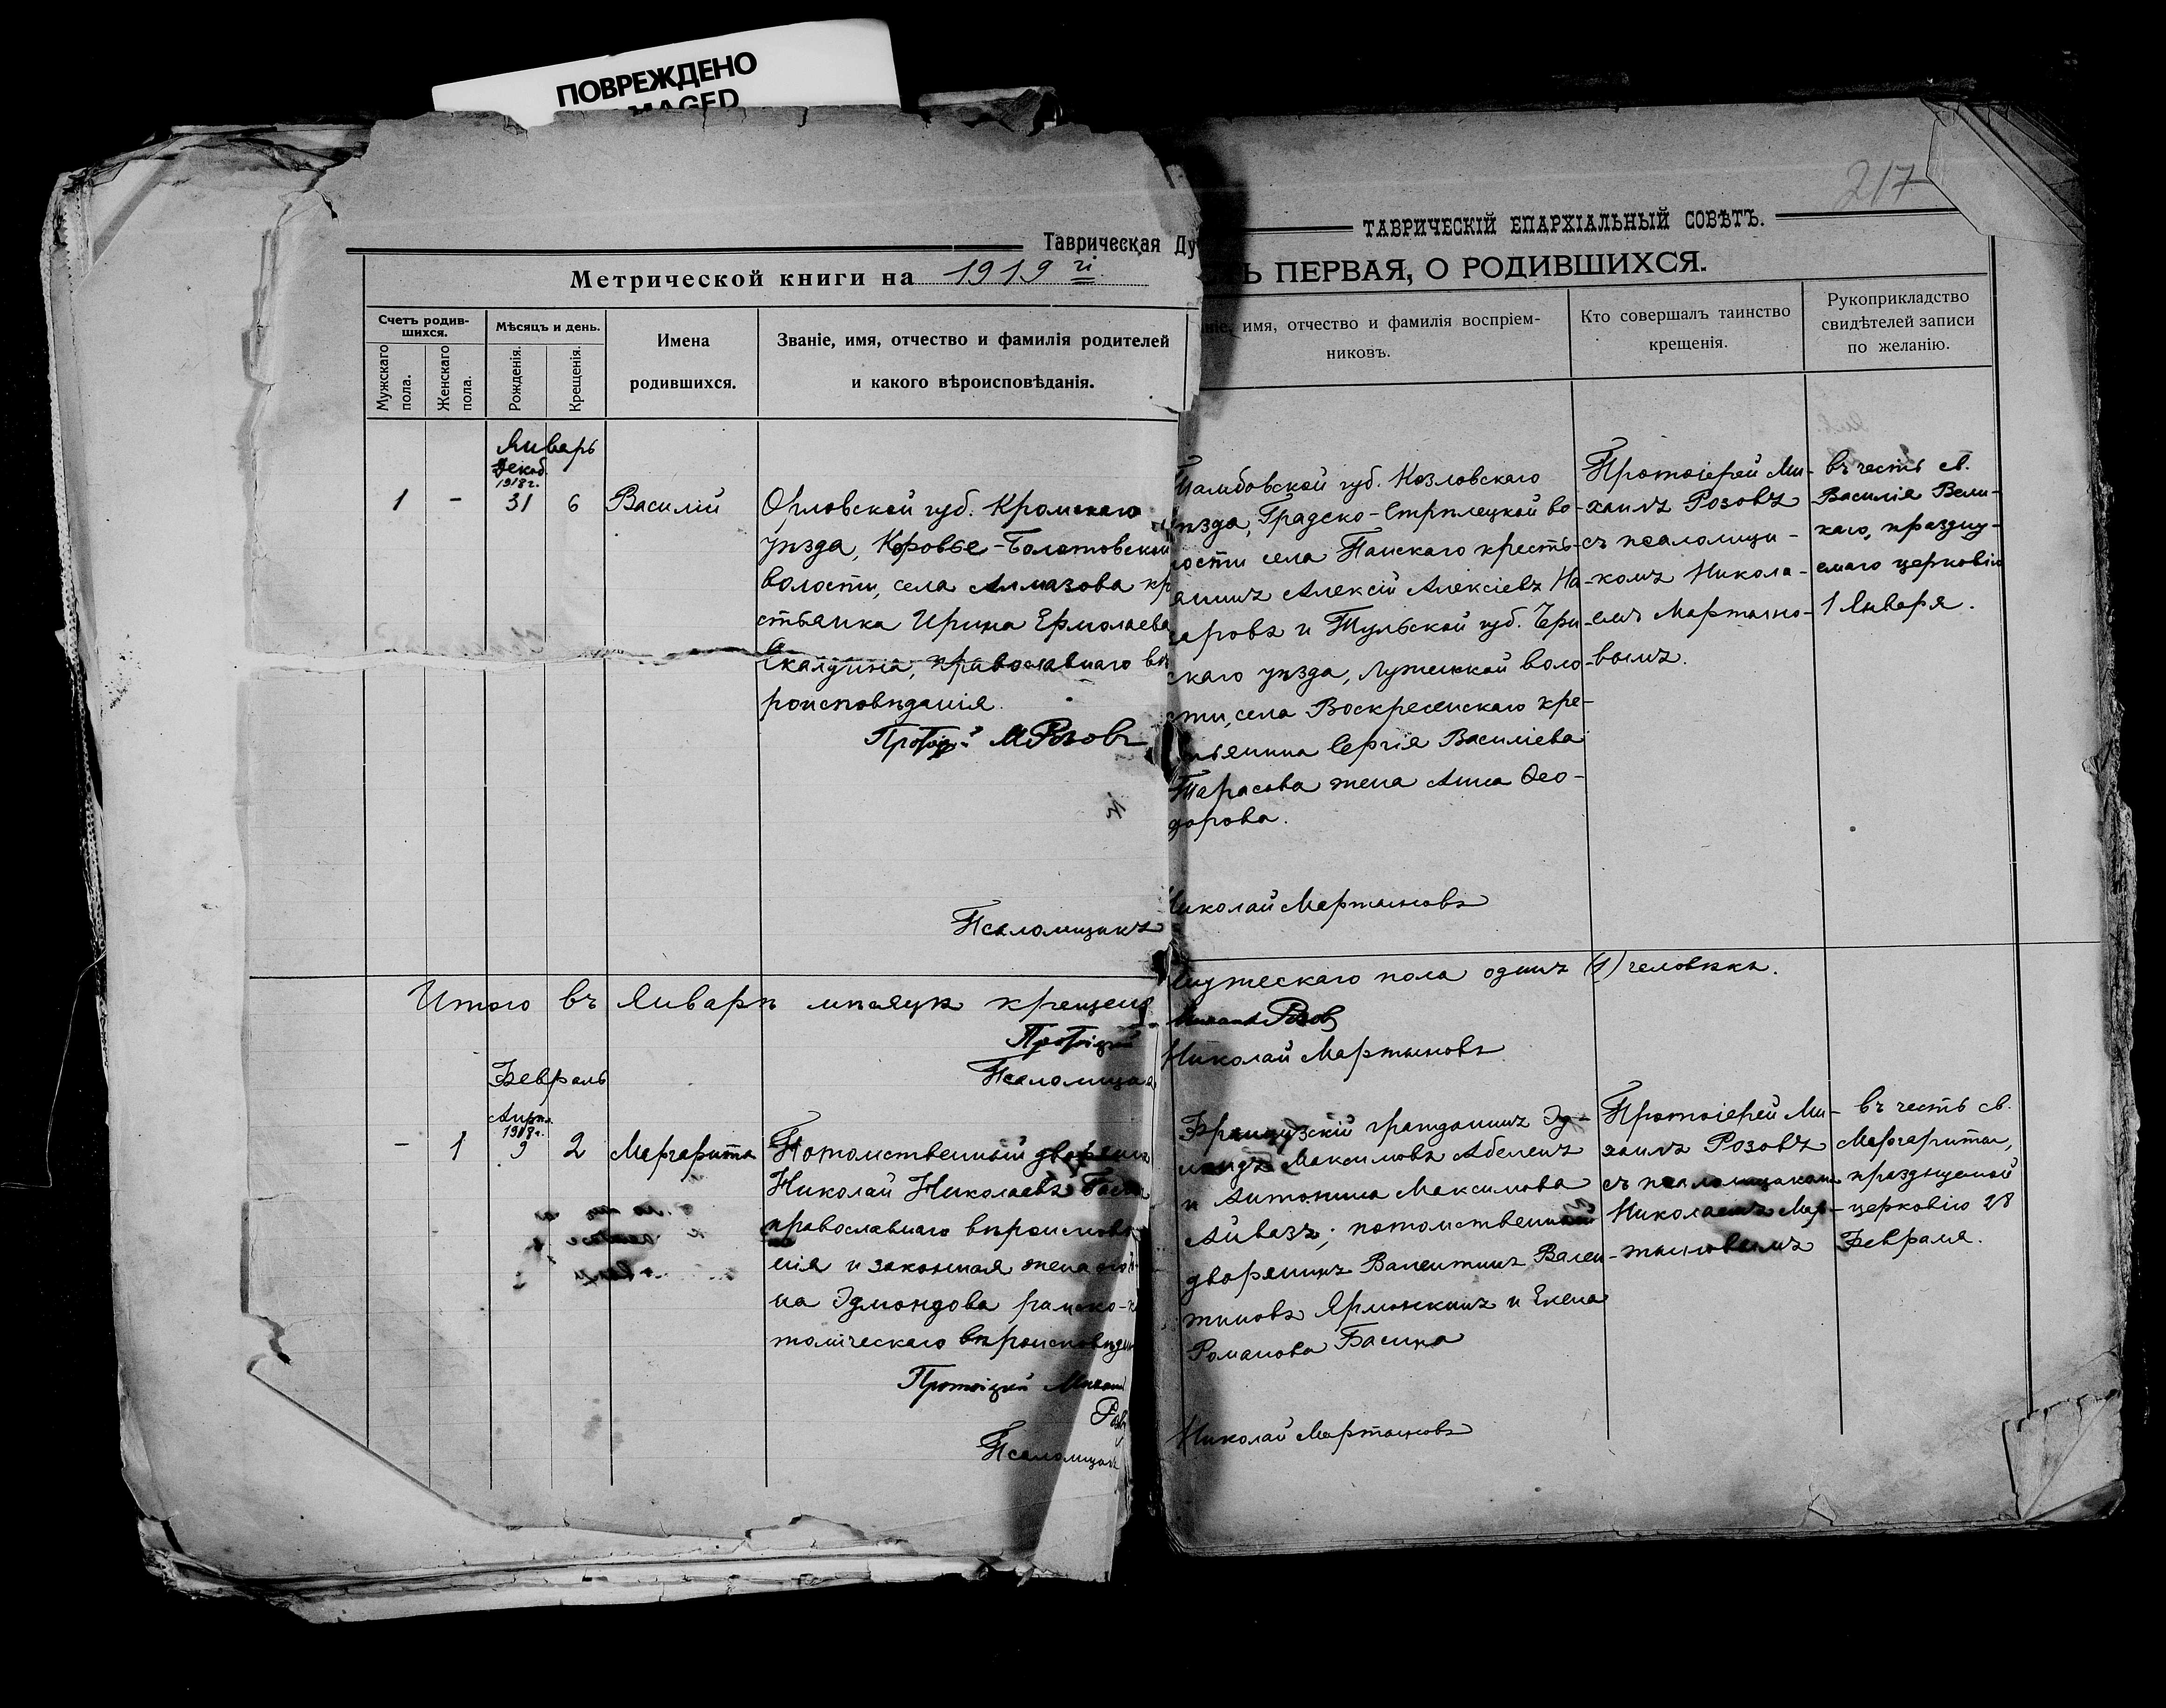 ПОВРЕЖДЕНО
DAMAGED
217
Таврическая Ду
ТАВРИЧЕСКІЙ ЕПАРХІАЛЬНЫЙ СОВѢТЪ.
Метрической книги на 1919 г.
Ь ПЕРВАЯ, О РОДИВШИХСЯ.
Счетъ родив-
шихся.
Мужскаго
пола.
Женскаго
пола.
Мѣсяцъ и день.
Рожденія.
Крещенія.
Имена
родившихся.
Званіе, имя, отчество и фамилія родителей
и какого вѣроисповѣданія.
ніе, имя, отчество и фамилія воспріем-
никовъ.
Кто совершалъ таинство
крещенія.
Рукоприкладство
свидѣтелей записи
по желанію.
Январь
Декаб.
1918 г.
1 - 31 6 Василій
Орловской губ. Кромскаго
уѣзда, Коровье-Болотовской
волости, села Алмазова кр
стьянка Ирина Ермолаева
Скалдина, православнаго вѣ
роисповѣданія.
Протоіерей М Розовъ
Псаломщикъ
Тамбовской губ. Козловскаго
уѣзда, Градско-Стрѣлецкой во-
лости села Панскаго кресть-
янинъ Алексій Алексіевъ На-
заровъ и Тульской губ. Черн-
скаго уѣзда, Луженской воло-
сти, села Воскресенскаго кре-
стьянина Сергія Василіева
Тарасова жена Анна Ѳео-
дорова.
Николай Мартыновъ
Протоіерей Ми-
хаилъ Розовъ
съ псаломщи-
комъ Никола-
емъ Мартыно-
вымъ.
въ честь св.
Василія Вели-
каго, праздну-
емаго церковію
1 Января.
Итого въ Январѣ мѣсяцѣ крещено
мужескаго пола одинъ (1) человѣкъ.
Протоіерей Михаилъ Розовъ
Псаломщикъ Николай Мартыновъ
Февраль
Апрѣ.
1918 г.
- 1 9 2 Маргарита
Потомственный дворянинъ
Николай Николаевъ
православнаго вѣроисповѣ
нія и законная жена его
на Эдмондова римско-к
толическаго вѣроисповѣдан
Протоіерей Михаилъ
Розовъ
Псаломщикъ
Французскій гражданинъ Эд-
мондъ Максимовъ Абеленъ
и Антонина Максимова
Айвазъ; потомственный
дворянинъ Валентинъ Вален-
тиновъ Ярмонкинъ и Елена
Романова Басина
Николай Мартыновъ
Протоіерей Ми-
хаилъ Розовъ
съ псаломщикомъ
Николаемъ Мар-
тыновымъ
въ честь св.
Маргариты,
празднуемой
церковію 28
Февраля.